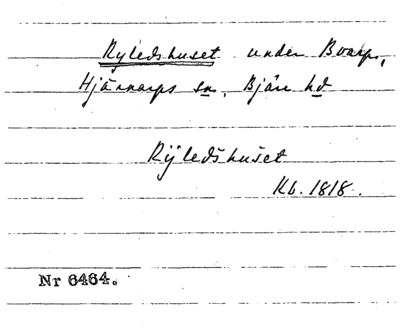 Ryledshuset under Boarp,
Hjärnarps sn, Bjäre hd
Rÿledshuset
Kb. 1818.
Nr 6464.